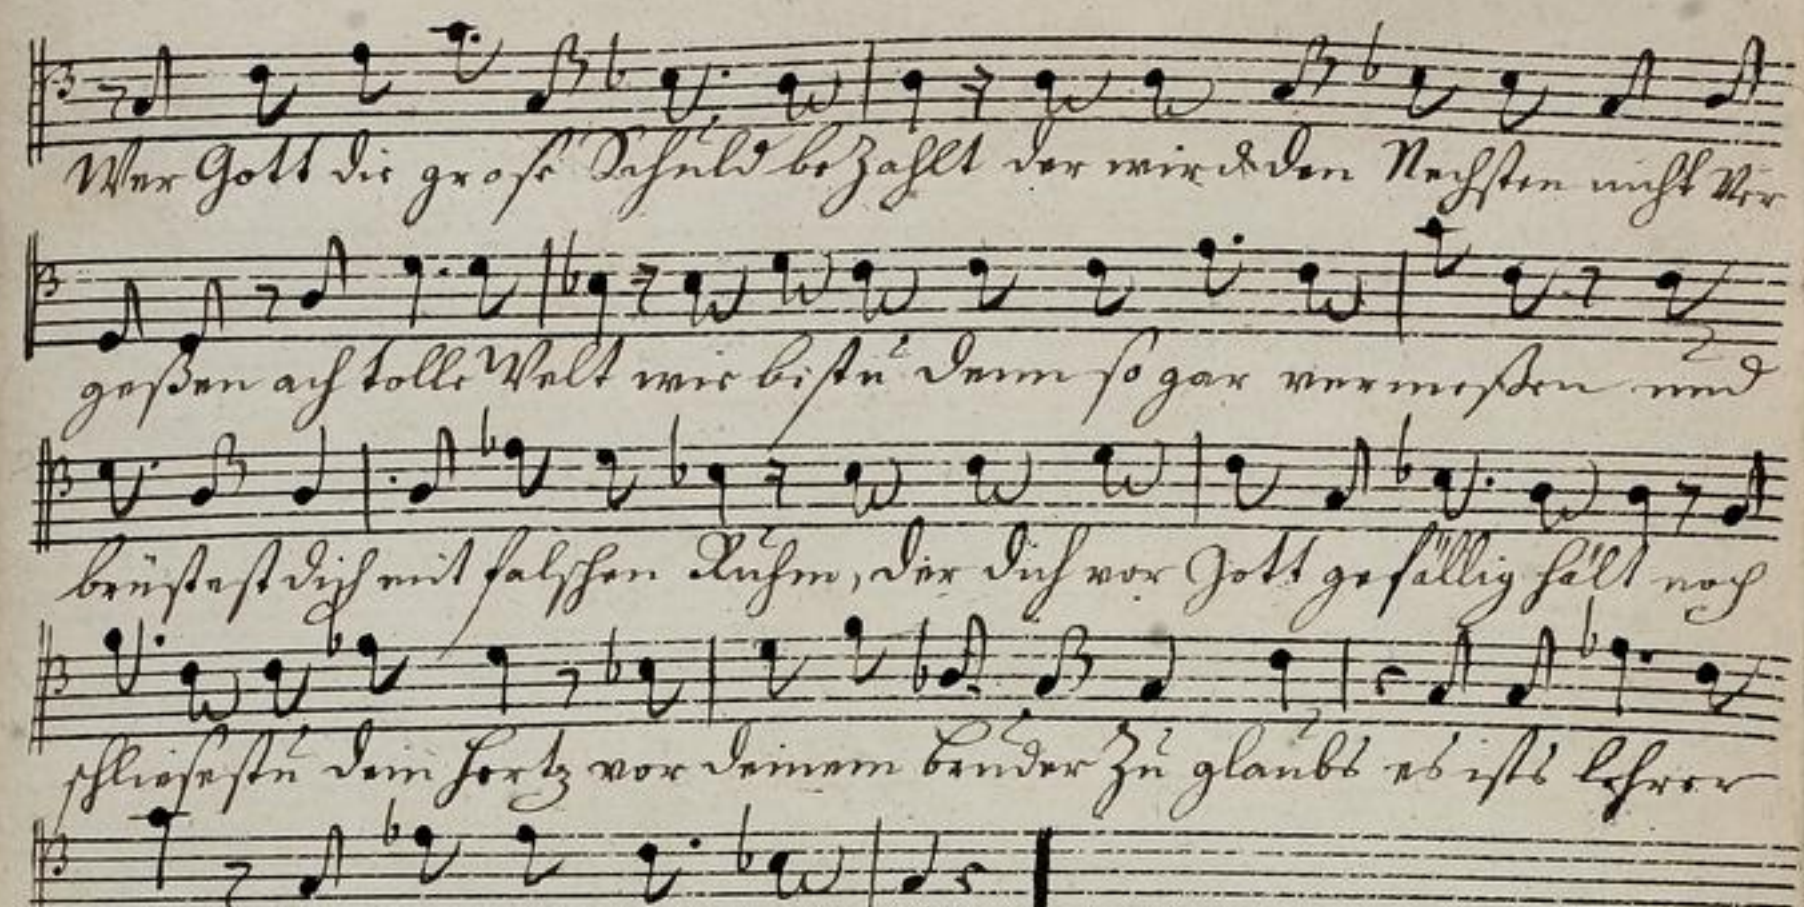 Wer Gott die große Schuld bezahlt der wird den Nechsten nicht Ver
geßen ach tolle Welt wie bistu denn so gar vermeßen und
brüstest dich mit falschen Ruhm, der dich vor Gott gefällig hält noch
schliesestu dein hertz vor deinem bruder zu glaubs es ists